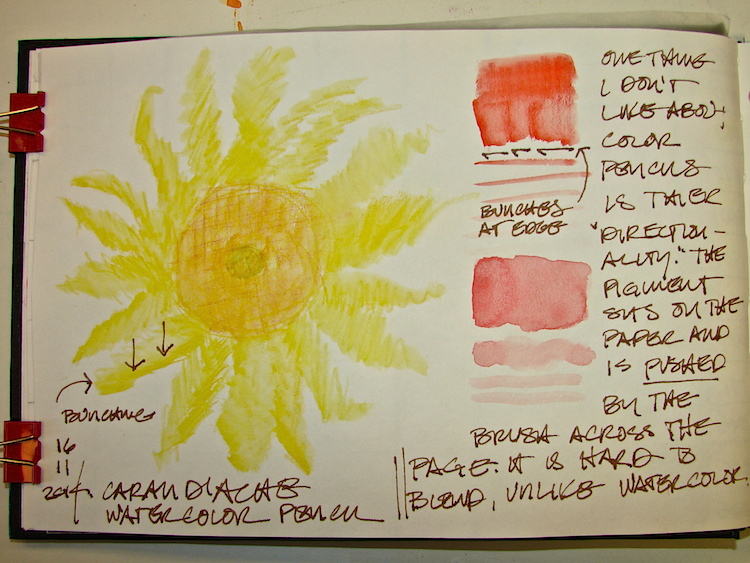 ONE THING
I DON'T
LIKE ABOUT
COLOR
PENCILS
IS THIER
"DIRECTION-
ALITY." THE
PIGMENT
SITS ON THE
PAPER AND
IS PUSHED
BY THE
BRUSH ACROSS THE
PAGE. IT IS HARD TO
BLEND, UNLIKE WATERCOLOR.
BUNCHES
AT EDGE
BUNCHING
16
11
2014.
CARAN D'ACHE
WATERCOLOR PENCIL